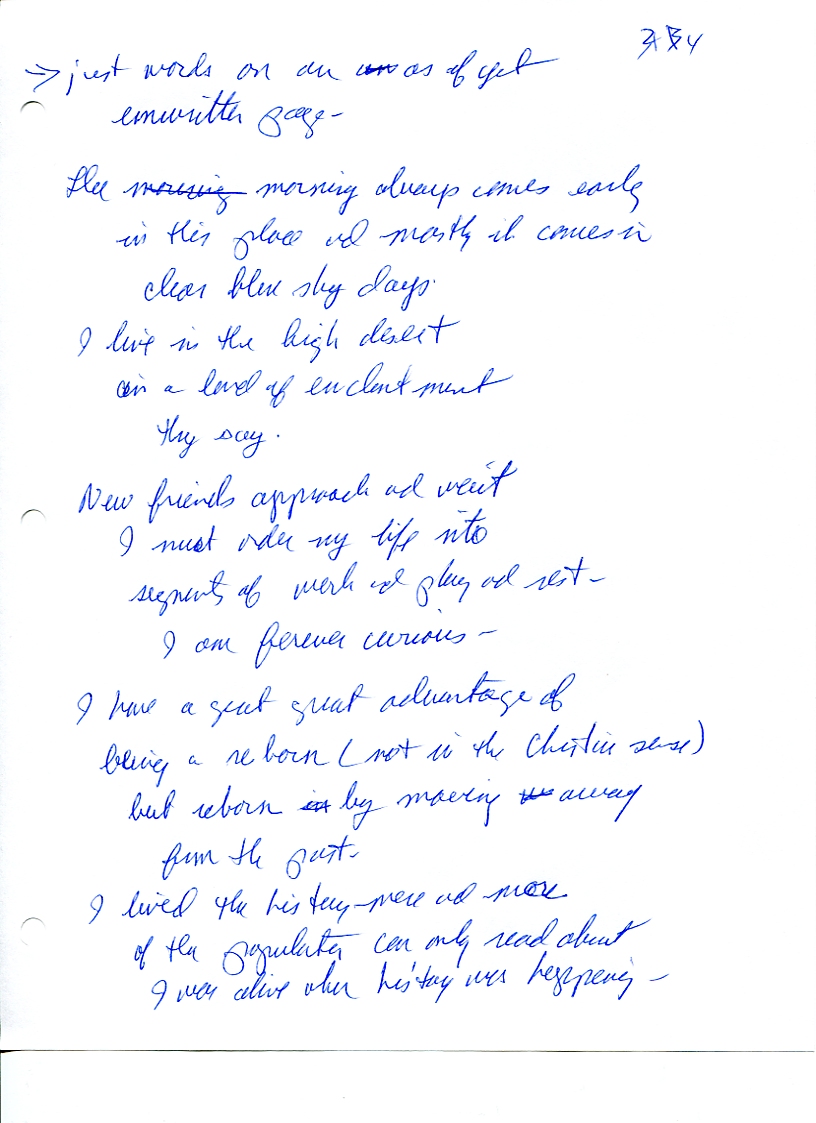 → just words on an as of yet
unwritten page-
The morning morning always comes early
in this place and mostly it comes in
clear blue sky days.
I live in the high desert
in a land of enchantment
they say.
New friends approach and wait
I must order my life into
segments of work and play and rest-
I am forever curious-
I have a great great advantage of
being a reborn (not in the Christian sense)
but reborn in by moving away
from the past-
I lived the history-more and more
of the population can only read about
I was alive when history was happening-